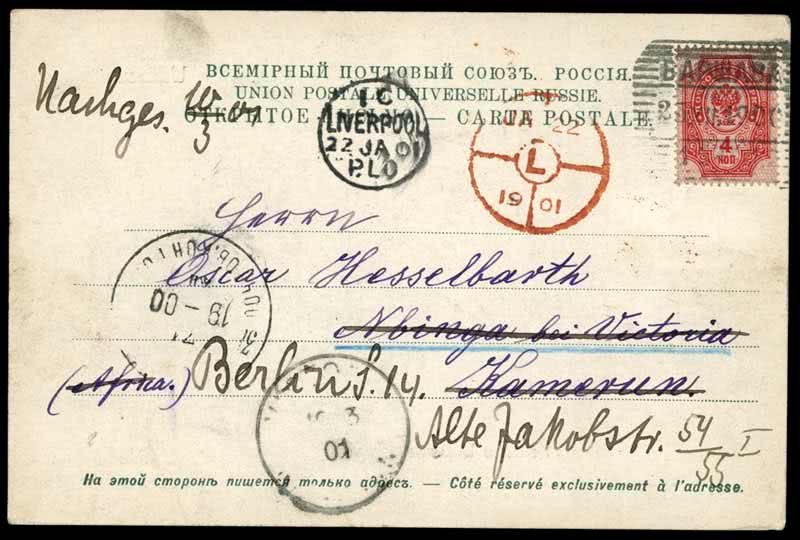 ВСЕМІРНЫЙ ПОЧТОВЫЙ СОЮЗЪ. РОССІЯ.
UNION POSTALE UNIVERSELLE RUSSIE.
ОТКРЫТОЕ — CARTE POSTALE.
Nachges. 10/3 01
1 C
LIVERPOOL
22 JA 01
P.L.O
JA 22
L
19 01
ВАРШАВА
4
КОП
Herrn
Oscar Hesselbarth
Nbinga bei Victoria
(Afrika.) Berlin S. 14. Kamerun.
19 - 00
3
01
Alte Jakobstr. 54/55 I
На этой сторонѣ пишется только адресъ. — Côté réservé exclusivement à l'adresse.